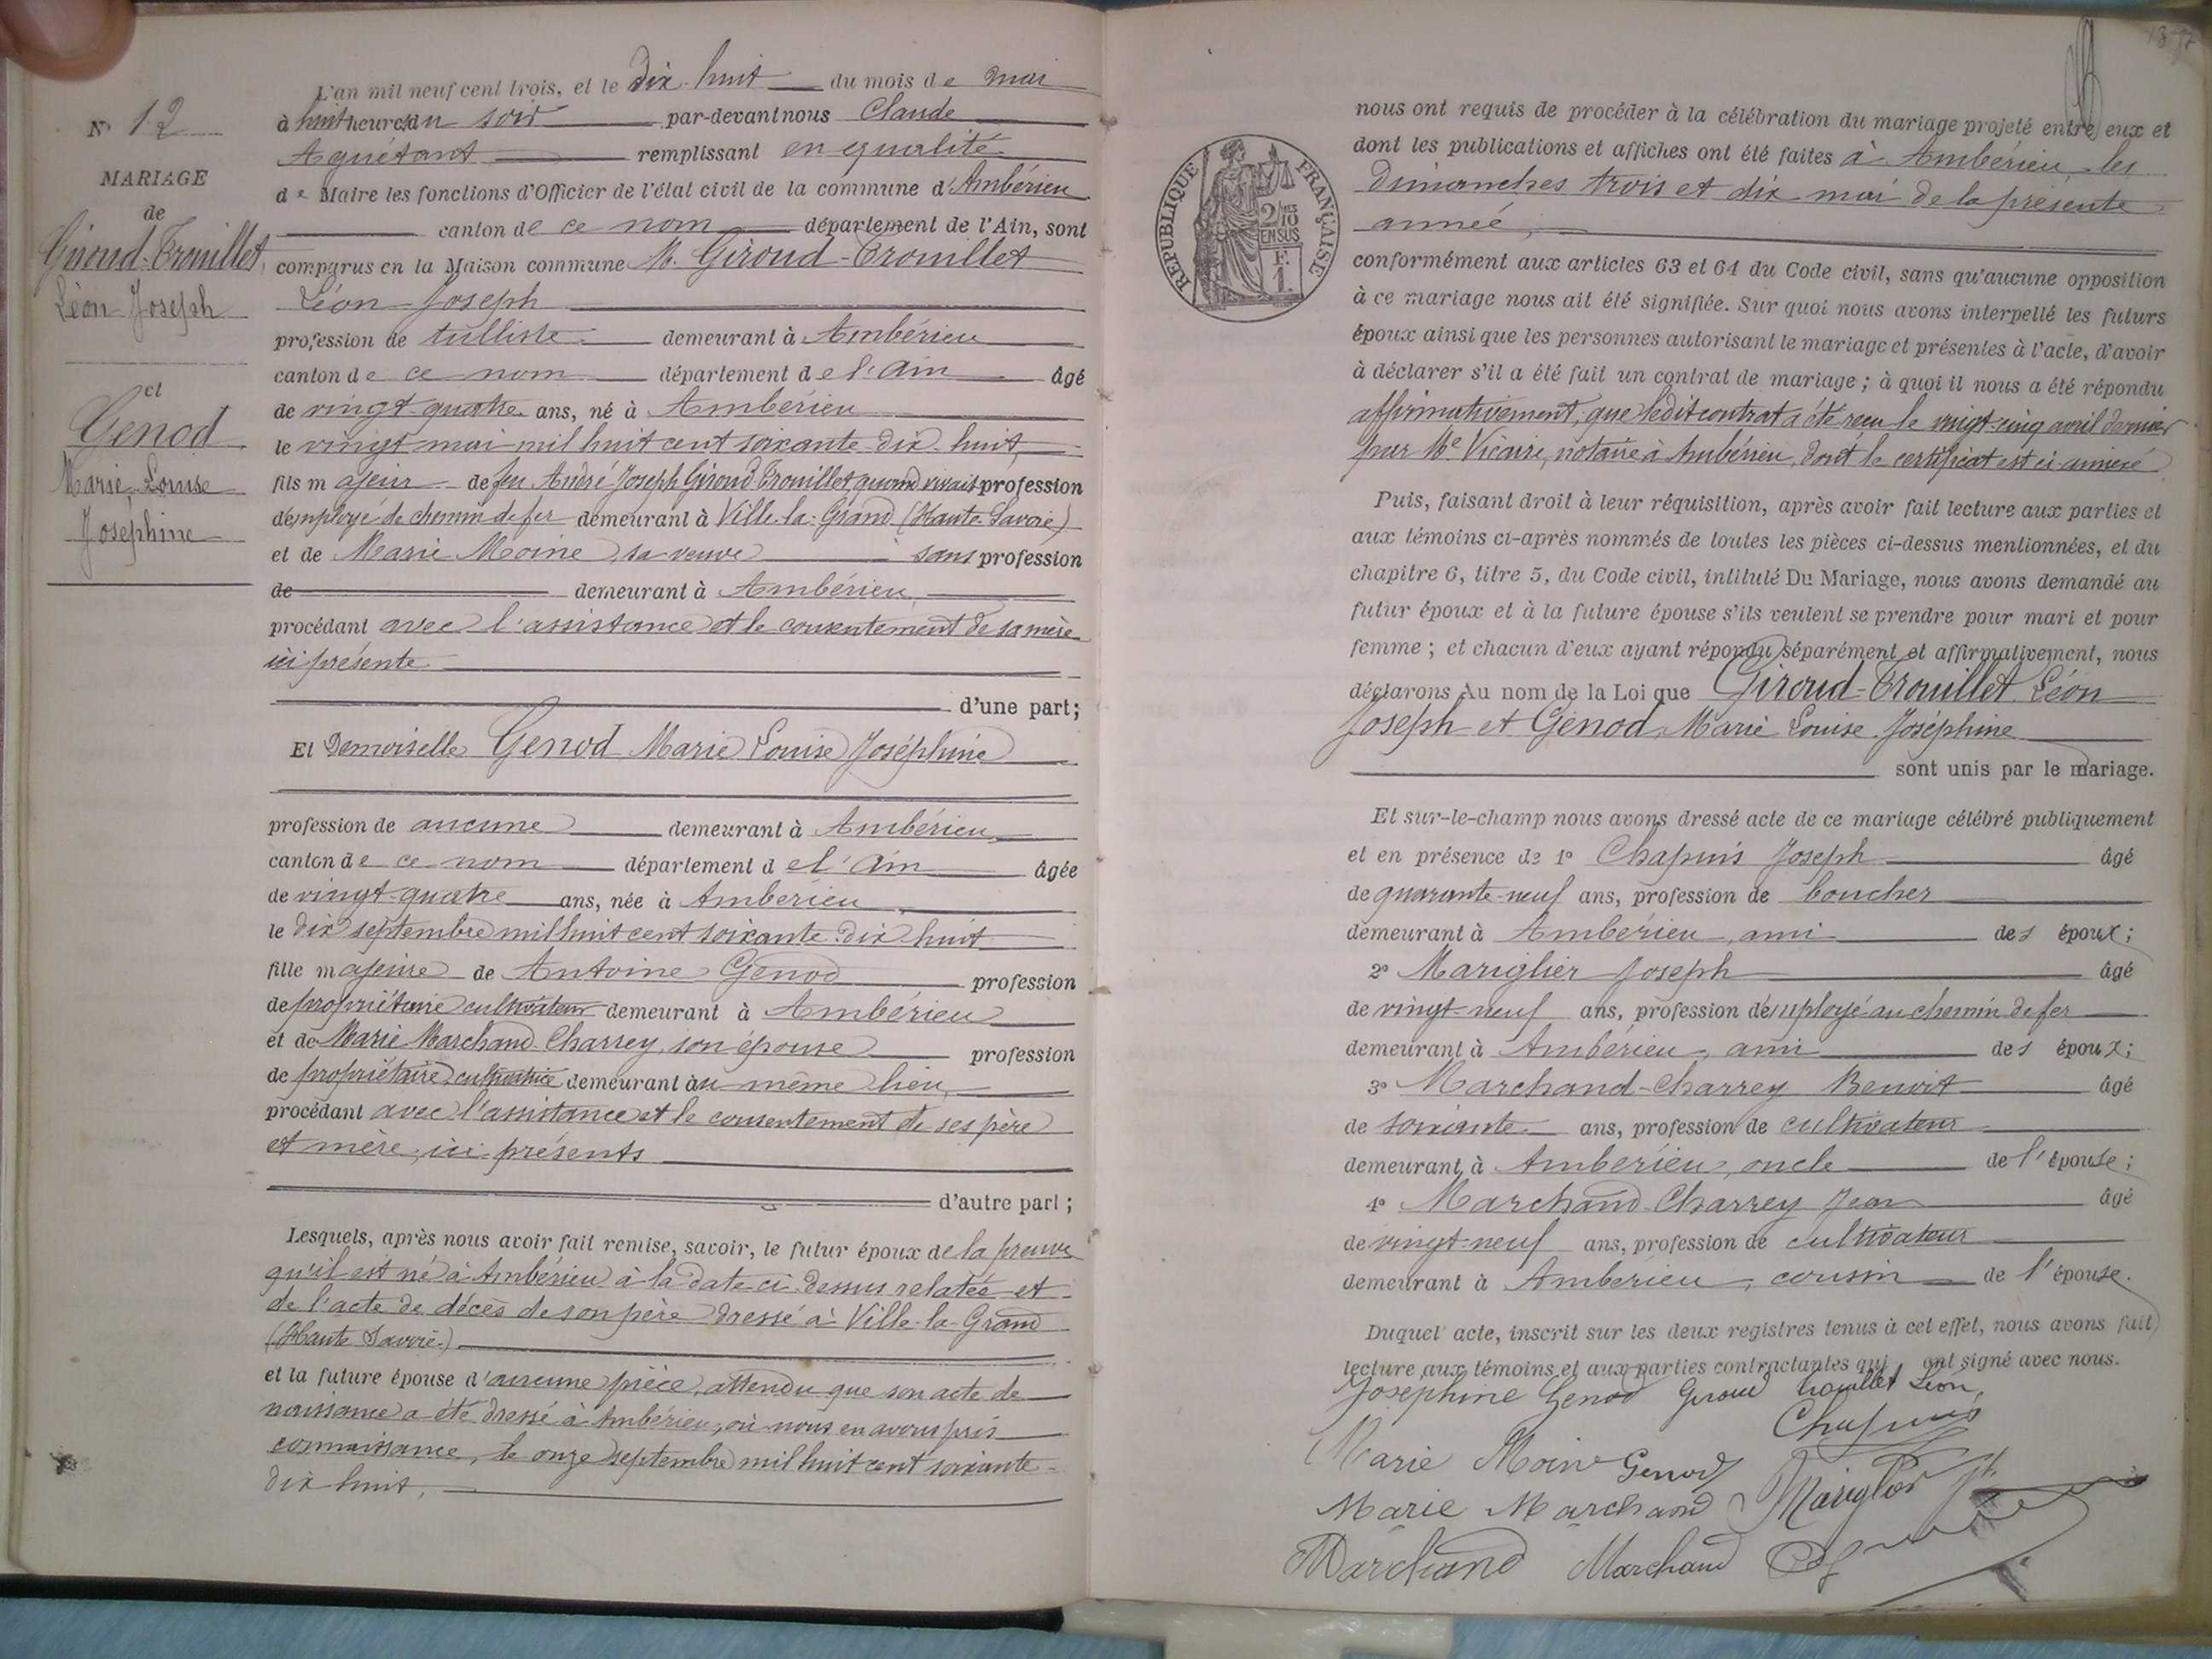 N° 12
MARIAGE
de
Giroud-Trouillet
Léon Joseph
et
Genod
Marie Louise
Joséphine
L'an mil neuf cent trois, et le dix-huit du mois de mai
à huit heures du soir par-devant nous Claude
Aguétant remplissant en qualité
de Maire les fonctions d'Officier de l'état civil de la commune d'Ambérieu
canton de ce nom département de l'Ain, sont
comparus en la Maison commune M. Giroud-Trouillet
Léon Joseph
profession de tulliste demeurant à Ambérieu
canton de ce nom département de l'Ain âgé
de vingt-quatre ans, né à Ambérieu
le vingt mai mil huit cent soixante-dix-huit,
fils majeur de feu André Joseph Giroud Trouillet, quand vivait profession
d'employé de chemin de fer demeurant à Ville-la-Grand (Haute-Savoie)
et de Marie Moine, sa veuve sans profession
de demeurant à Ambérieu,
procédant avec l'assistance et le consentement de sa mère
ici présente
d'une part;
Et Demoiselle Genod Marie Louise Joséphine
profession de aucune demeurant à Ambérieu
canton de ce nom département de l'Ain âgée
de vingt-quatre ans, née à Ambérieu
le dix septembre mil huit cent soixante-dix huit
fille majeure de Antoine Genod profession
de propriétaire cultivateur demeurant à Ambérieu
et de Marie Marchand-Charrey, son épouse profession
de propriétaire cultivatrice demeurant au même lieu,
procédant avec l'assistance et le consentement de ses père
et mère, ici présents
d'autre part;
Lesquels, après nous avoir fait remise, savoir, le futur époux de la preuve
qu'il est né à Ambérieu à la date ci-dessus relatée et
de l'acte de décès de son père dressé à Ville-la-Grand
(Haute Savoie.)
et la future épouse d'aucune pièce, attendu que son acte de
naissance a été dressé à Ambérieu, où nous en avons pris
connaissance, le onze septembre mil huit cent soixante-
dix huit,
REPUBLIQUE FRANÇAISE
2/10 EN SUS
F.
1.
nous ont requis de procéder à la célébration du mariage projeté entre eux et
dont les publications et affiches ont été faites à Ambérieu les
Dimanches trois et dix mai de la présente
année,
conformément aux articles 63 et 64 du Code civil, sans qu'aucune opposition
à ce mariage nous ait été signifiée. Sur quoi nous avons interpellé les futurs
époux ainsi que les personnes autorisant le mariage et présentes à l'acte, d'avoir
à déclarer s'il a été fait un contrat de mariage; à quoi il nous a été répondu
affirmativement, que ledit contrat a été reçu le vingt-cinq avril dernier
par Me Vicaire, notaire à Ambérieu, dont le certificat est ci-annexé
Puis, faisant droit à leur réquisition, après avoir fait lecture aux parties et
aux témoins ci-après nommés de toutes les pièces ci-dessus mentionnées, et du
chapitre 6, titre 5, du Code civil, intitulé Du Mariage, nous avons demandé au
futur époux et à la future épouse s'ils veulent se prendre pour mari et pour
femme; et chacun d'eux ayant répondu séparément et affirmativement, nous
déclarons Au nom de la Loi que Giroud-Trouillet Léon
Joseph et Genod, Marie Louise Joséphine
sont unis par le mariage.
Et sur-le-champ nous avons dressé acte de ce mariage célébré publiquement
et en présence de 1° Chapuis Joseph âgé
de quarante-neuf ans, profession de boucher
demeurant à Ambérieu, ami des époux;
2° Mariglier Joseph âgé
de vingt-neuf ans, profession d'employé au chemin de fer
demeurant à Ambérieu, ami des époux;
3° Marchand-Charrey Benoit âgé
de soixante ans, profession de cultivateur
demeurant à Ambérieu, oncle de l'épouse;
4° Marchand Charrey Jean âgé
de vingt-neuf ans, profession de cultivateur
demeurant à Ambérieu, cousin de l'épouse.
Duquel acte, inscrit sur les deux registres tenus à cet effet, nous avons fait
lecture aux témoins et aux parties contractantes qui ont signé avec nous.
Joséphine Genod Giroud Trouillet Léon,
Chapuis
Marie Moine Genod
Marie Marchand
Marchand Marchand